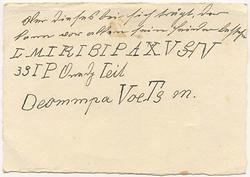 Wer dieses bei sich trägt, der
kann vor allen sein Feinden besteh
I. M I R I B I P A X V G V
33 I P Orady Teit
Deommpa Voe Ts m.